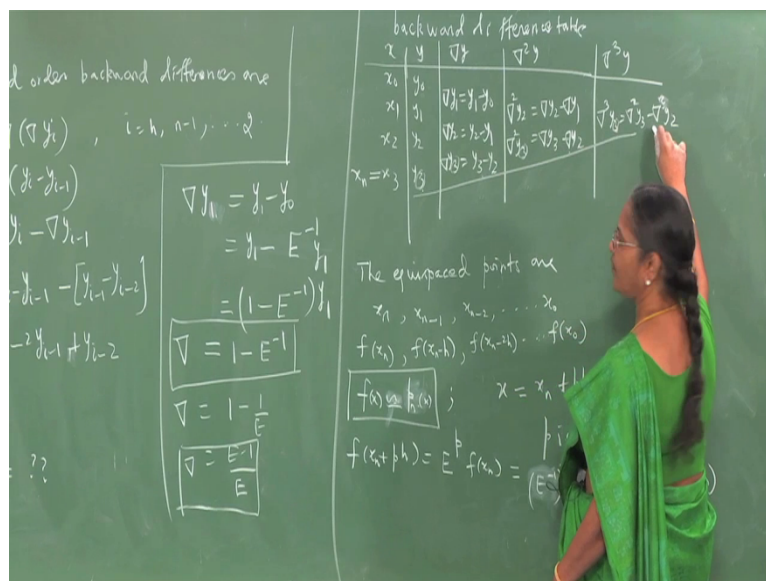 d order backward differences are
(∇yᵢ) , i=n, n-1, ... 2.
(yᵢ-yᵢ₋₁)
yᵢ-∇yᵢ₋₁
-yᵢ₋₁ -[yᵢ₋₁-yᵢ₋₂]
-2yᵢ₋₁+yᵢ₋₂
= ??
∇y₁ = y₁-y₀
= y₁- E⁻¹y₁
=(1-E⁻¹)y₁
∇ = 1-E⁻¹
∇ = 1-1/E
∇ = E-1/E
backward differences table
x y ∇y ∇²y ∇³y
x₀ y₀
x₁ y₁ ∇y₁=y₁-y₀ ∇²y₂=∇y₂-∇y₁ ∇³y₃=∇²y₃-∇²y₂
x₂ y₂ ∇y₂=y₂-y₁ ∇²y₃=∇y₃-∇y₂
xₙ=x₃ y₃ ∇y₃=y₃-y₂
The equispaced points are
xₙ, xₙ₋₁, xₙ₋₂, ..... x₀
f(xₙ), f(xₙ-h), f(xₙ-2h)... f(x₀)
f(x)≃pₙ(x) ; x = xₙ+
p
f(xₙ+ph)= Eᵖ f(xₙ) =